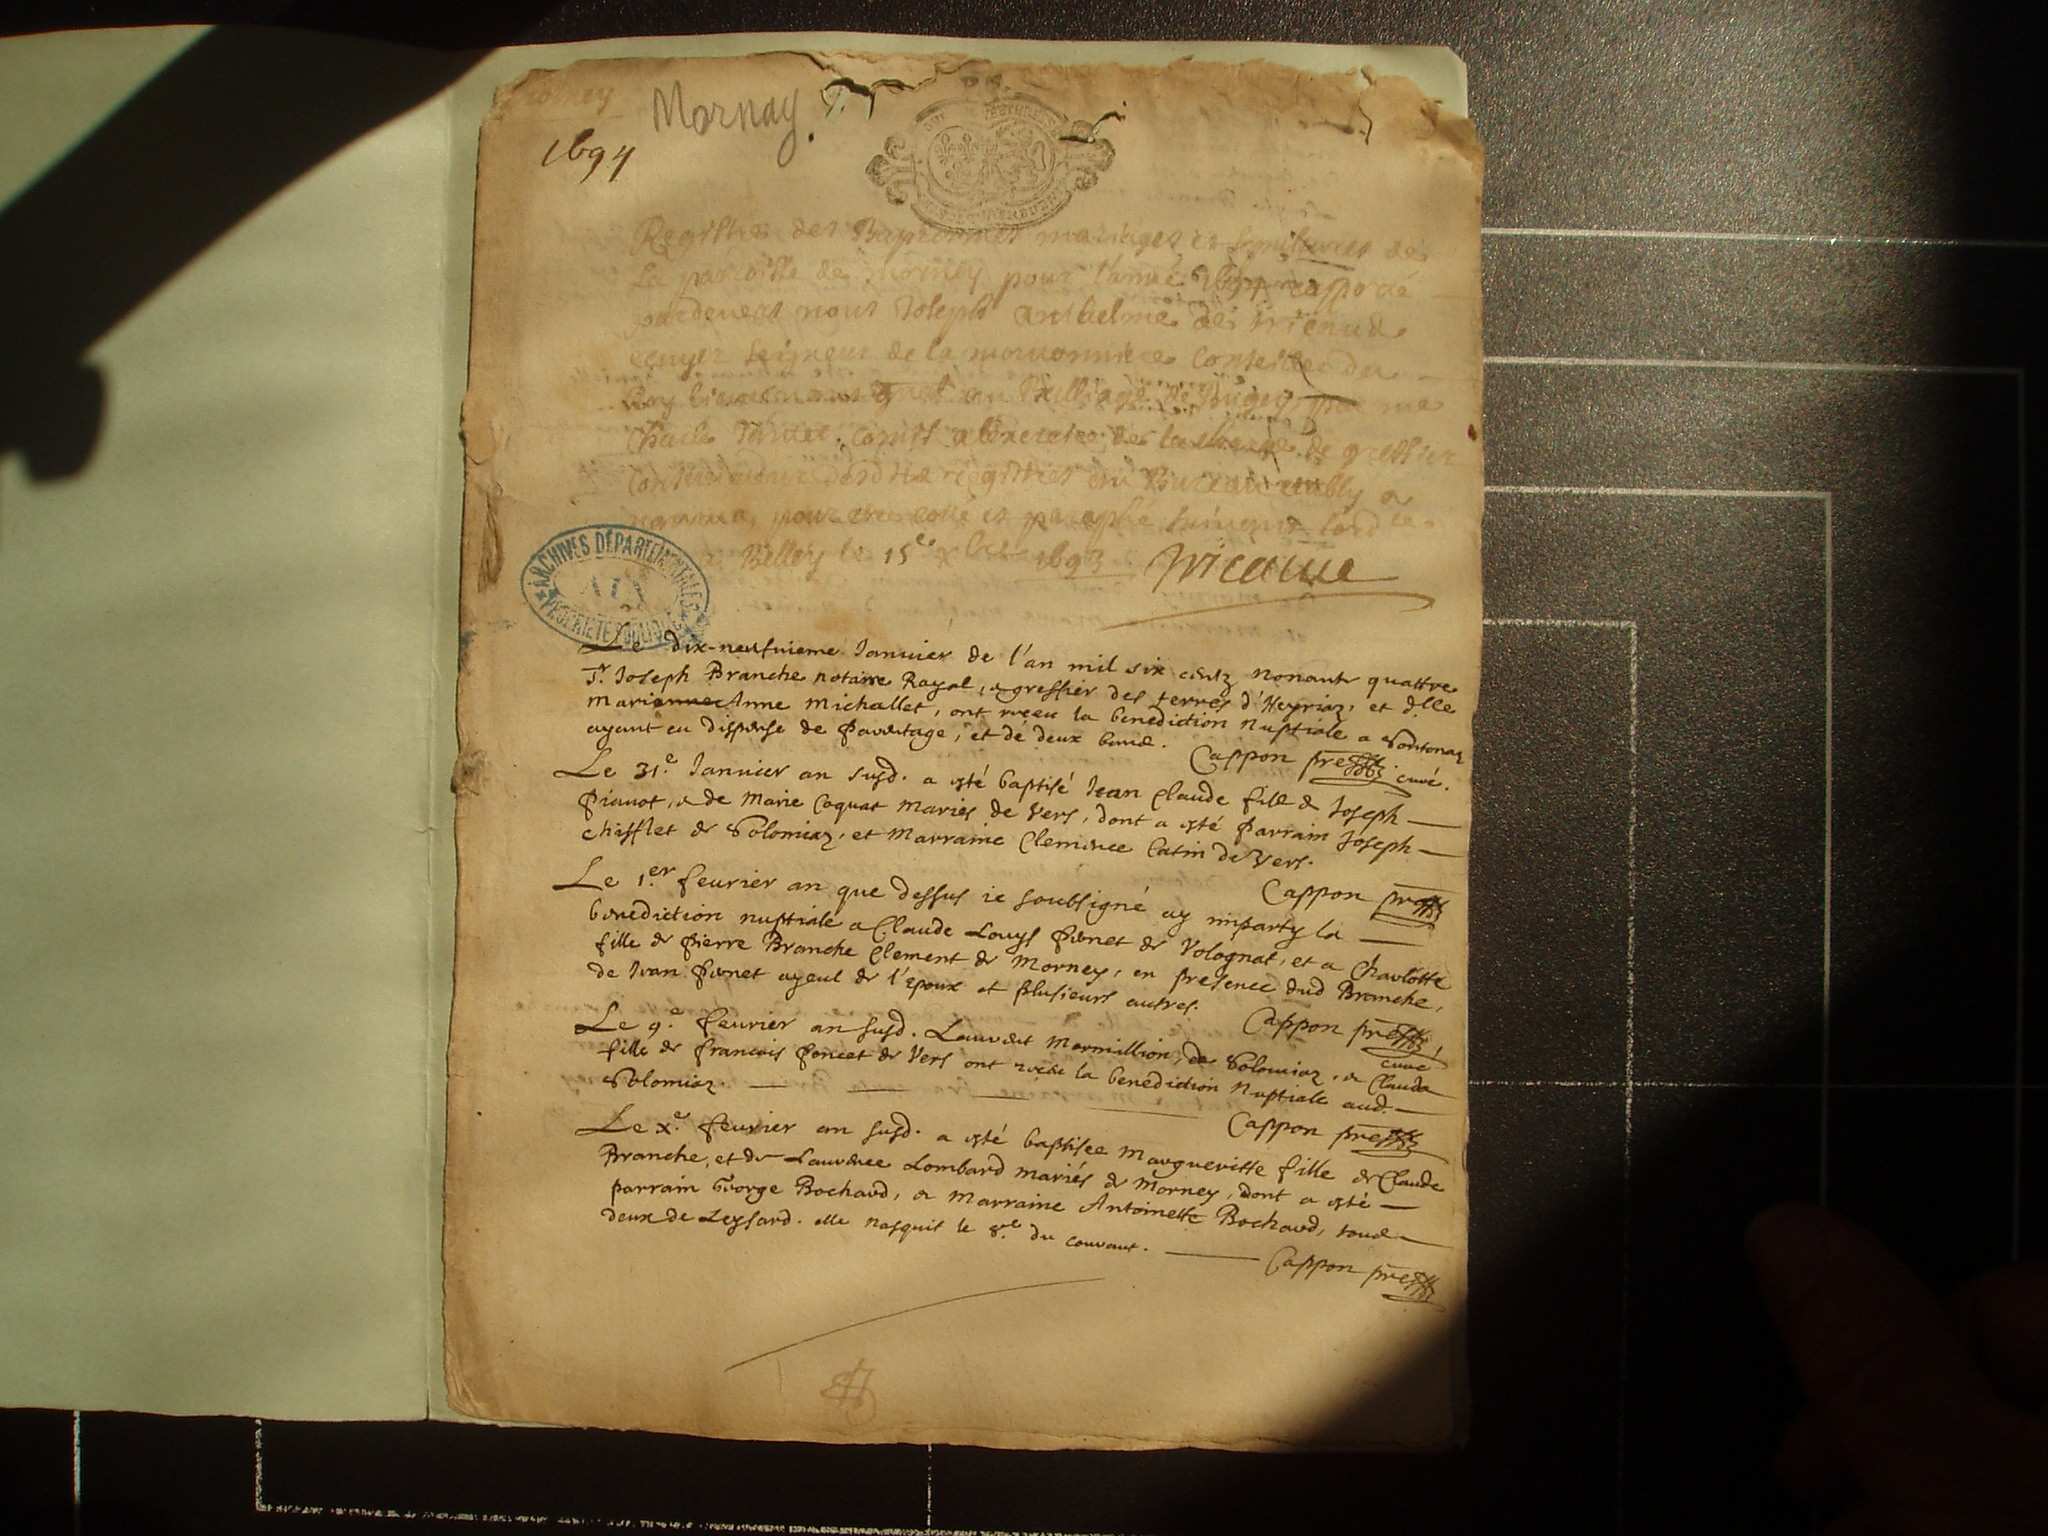 Morney
Mornay.
1694
Registre des Baptesmes mariages et sepultures de
La paroisse de Morney pour l'année 1694 rapporté
pardevant nous Joseph anthelme de
ecuyer seigneur de la Conseiller du
Roy au Bailliage de Bugey, par me
Charle commis a l'exercice de la charge de greffier
Conservateur desd registres au Bureau estably a
nantua, pour
a Belley le 15e xbre 1693
ARCHIVES DÉPARTEMENTALES
AIN
PROPRIÉTÉ PUBLIQUE
Le dix-neufuieme Januier de l'an mil six centz nonante quattre
Sr. Joseph Branche notaire Royal, & greffier des terres d'Heyriaz, et dlle
Marianne Anne Michallet, ont receu la benediction Nuptiale a Sonthonaz
ayant eu dispense de Parentage, et de deux bans. Cappon prestre curé.
Le 31.e Januier an susd. a esté baptisé Jean Claude fils de Joseph
Pianot, & de Marie Coquat Mariés de Vers, dont a esté Parrain Joseph
Chifflet de Solomiaz, et Marraine Clemence Catin de Vers.
Cappon prestre
Le 1.er feurier an que dessus ie soubsigné ay imparty la
benediction nuptiale a Claude Louys Penet de Volognat, et a Charlotte
fille de Pierre Branche Clement de Morney, en presence dud Branche,
de Jean Penet ayeul de l'epoux et plusieurs autres. Cappon prestre,
curé
Le 9.e feurier an susd. Laurent Mermillion, de Solomiaz, & Clauda
fille de Francois Poncet de Vers ont receu la benediction Nuptiale aud.
Solomiaz. Cappon prestre
Le x.e feurier an susd. a esté baptisee Margueritte fille de Claude
Branche, et de Laurence Lombard mariés de Morney, dont a esté
parrain George Bochard, & Marraine Antoinette Bochard, tous
deux de Leyssard. elle nasquit le 8.e du courant. Cappon prestre